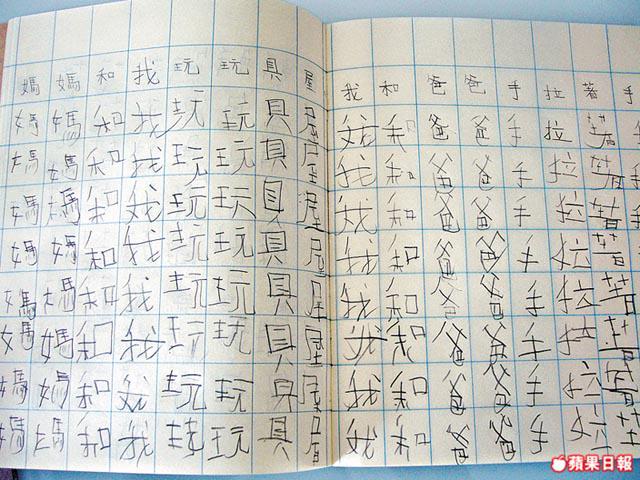 媽媽和我玩玩具屋
媽媽和我玩玩具屋
媽媽和我玩玩具屋
媽媽和我玩玩具屋
媽媽和我玩玩具屋
媽媽和我玩玩具屋
媽媽和我玩玩具屋
媽媽和我玩玩具屋
媽媽和我玩玩具屋
我和爸爸手拉著手
我和爸爸手拉著手
我和爸爸手拉著手
我和爸爸手拉著手
我和爸爸手拉著
我和爸爸手拉著
我和爸爸手拉著
我和爸爸手拉著
我和爸爸手拉著
蘋果日報